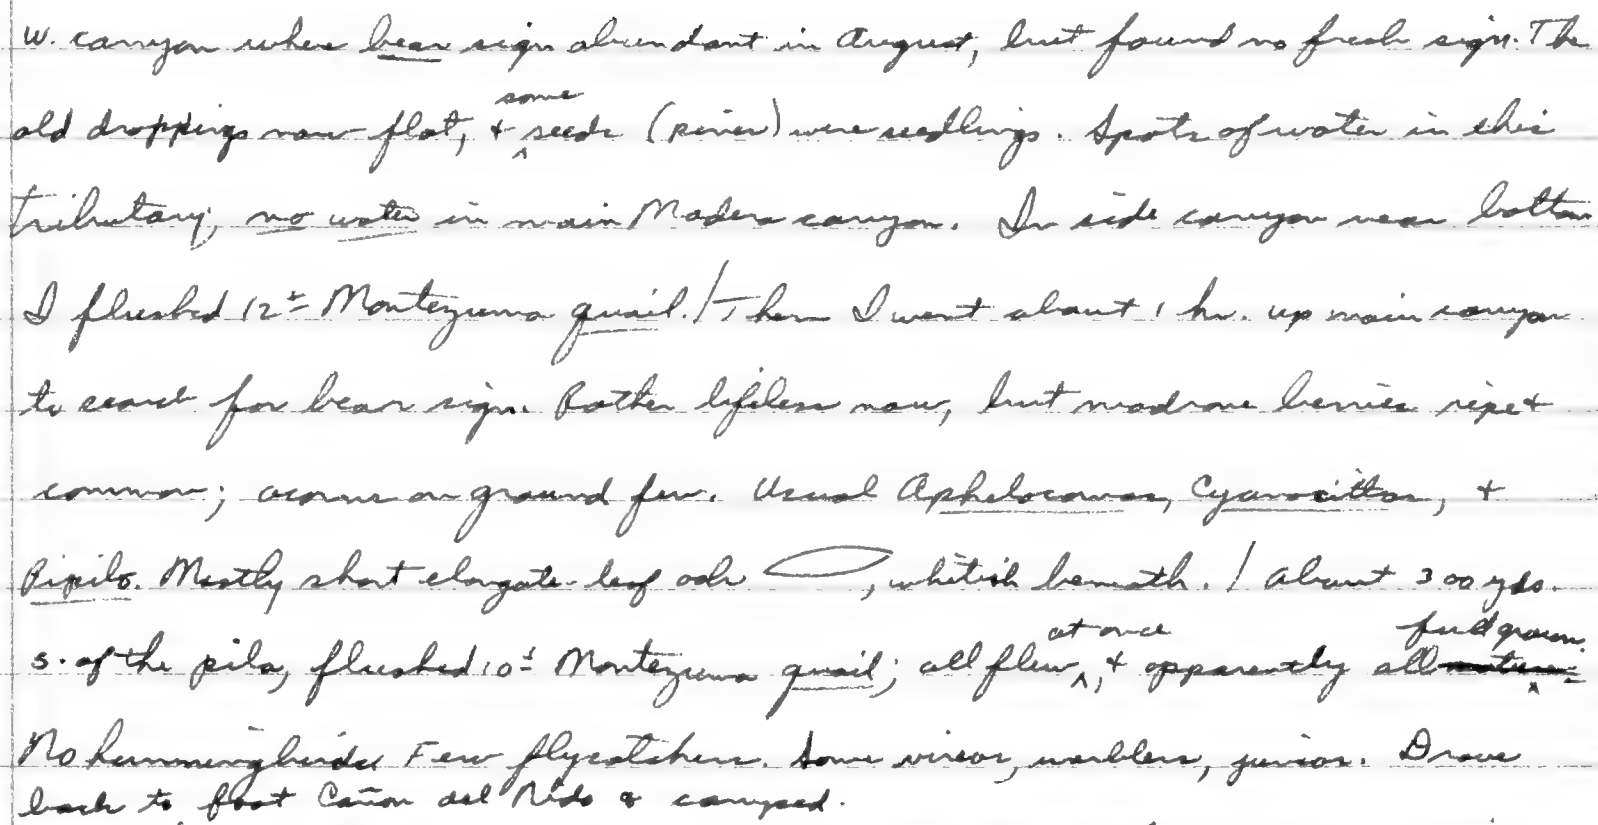 W. canyon where bear sign abundant in August, but found no fresh sign. The
old droppings now flat, & some seeds (pines) were seedlings. Spots of water in this
tributary, no water in main Madera canyon. In side canyon near bottom
I flushed 12± Montezuma quail. / Then I went about 1 hr. up main canyon
to search for bear sign. Rather lifeless now, but madrone berries ripe &
common; acorns on ground few. Usual Aphelocomas, Cyanocittas, &
Pipilo. Mostly short elongate-leaf oak , whitish beneath. / About 300 yds.
S. of the pila, flushed 10± Montezuma quail; all flew at once, & apparently all full grown.
No hummingbirds. Few flycatchers. Some vireos, warblers, juncos. Drove
back to foot Cañon del Nido & camped.